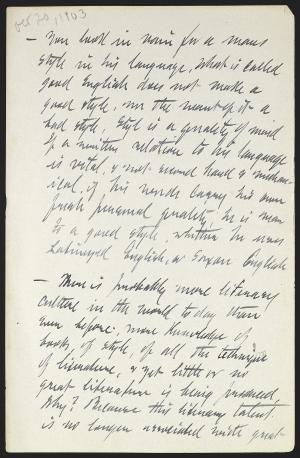 Oct 20, 1903
— You look in vain for a mans
style in his language. What is called
good English does not make a
good style, nor the want of it a
bad style. Style is a quality of mind
If a writers relation to his language
is vital, & not second hand & mechan-
ical, if his words convey his own
fresh personal quality he is near
to a good style, whether he uses
Latinized English, or Saxon English
— There is probably more literary
culture in the world to day than
ever before, more knowledge of
books, of style, of all the technique
of literature, & yet little or no
great literature is being produced,
Why? Because this literary talent
is no longer associated with great